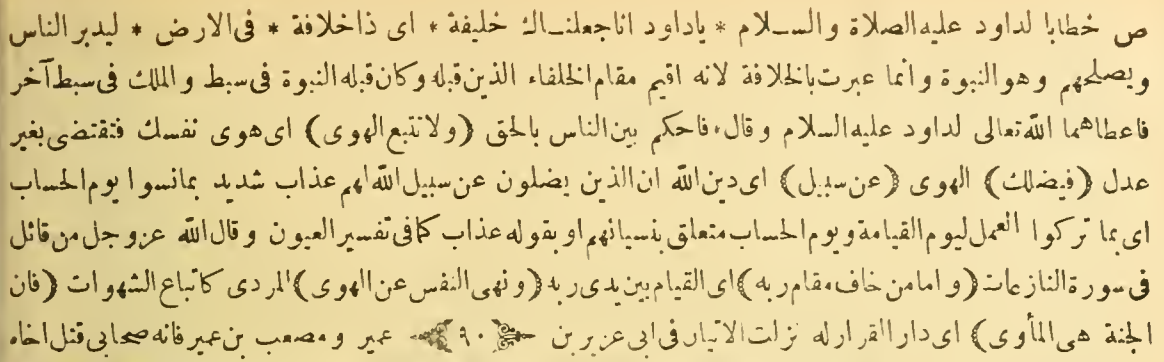 ص خطابا لداود عليه الصلاة والسلام * ياداود اناجعلنـاك خليفة * اى ذاخلافة * فى الارض * ليدبر الناس
ويصلحهم وهو النبوة وانما عبرت بالخلافة لانه اقيم مقام الخلفاء الذين قبله وكان قبله النبوة فى سبط والملك فى سبط آخر
فاعطاهما الله تعالى لداود عليه السلام وقال * فاحكم بين الناس بالحق ﴿ولا تتبع الهوى﴾ اى هوى نفسك فتقتضى بغير
عدل ﴿فيضلك﴾ الهوى ﴿عن سبيل﴾ اى دين الله ان الذين يضلون عن سبيل الله لهم عذاب شديد بمانسوا يوم الحساب
اى بما تركوا العمل ليوم القيامة ويوم الحساب متعلق بنسيانهم او بقوله عذاب كمافى تفسير العيون وقال الله عزوجل من قائل
فى سورة النازعات ﴿وامامن خاف مقام ربه﴾ اى القيام بين يدى ربه ﴿ونهى النفس عن الهوى﴾ المردى كاتباع الشهوات ﴿فان
الجنة هى المأوى﴾ اى دار القرار له نزلت الاتيان فى ابى عزيز بن ﴿٩٠﴾ عمير ومصعب بن عمير فانه صحابى قتل اخاه